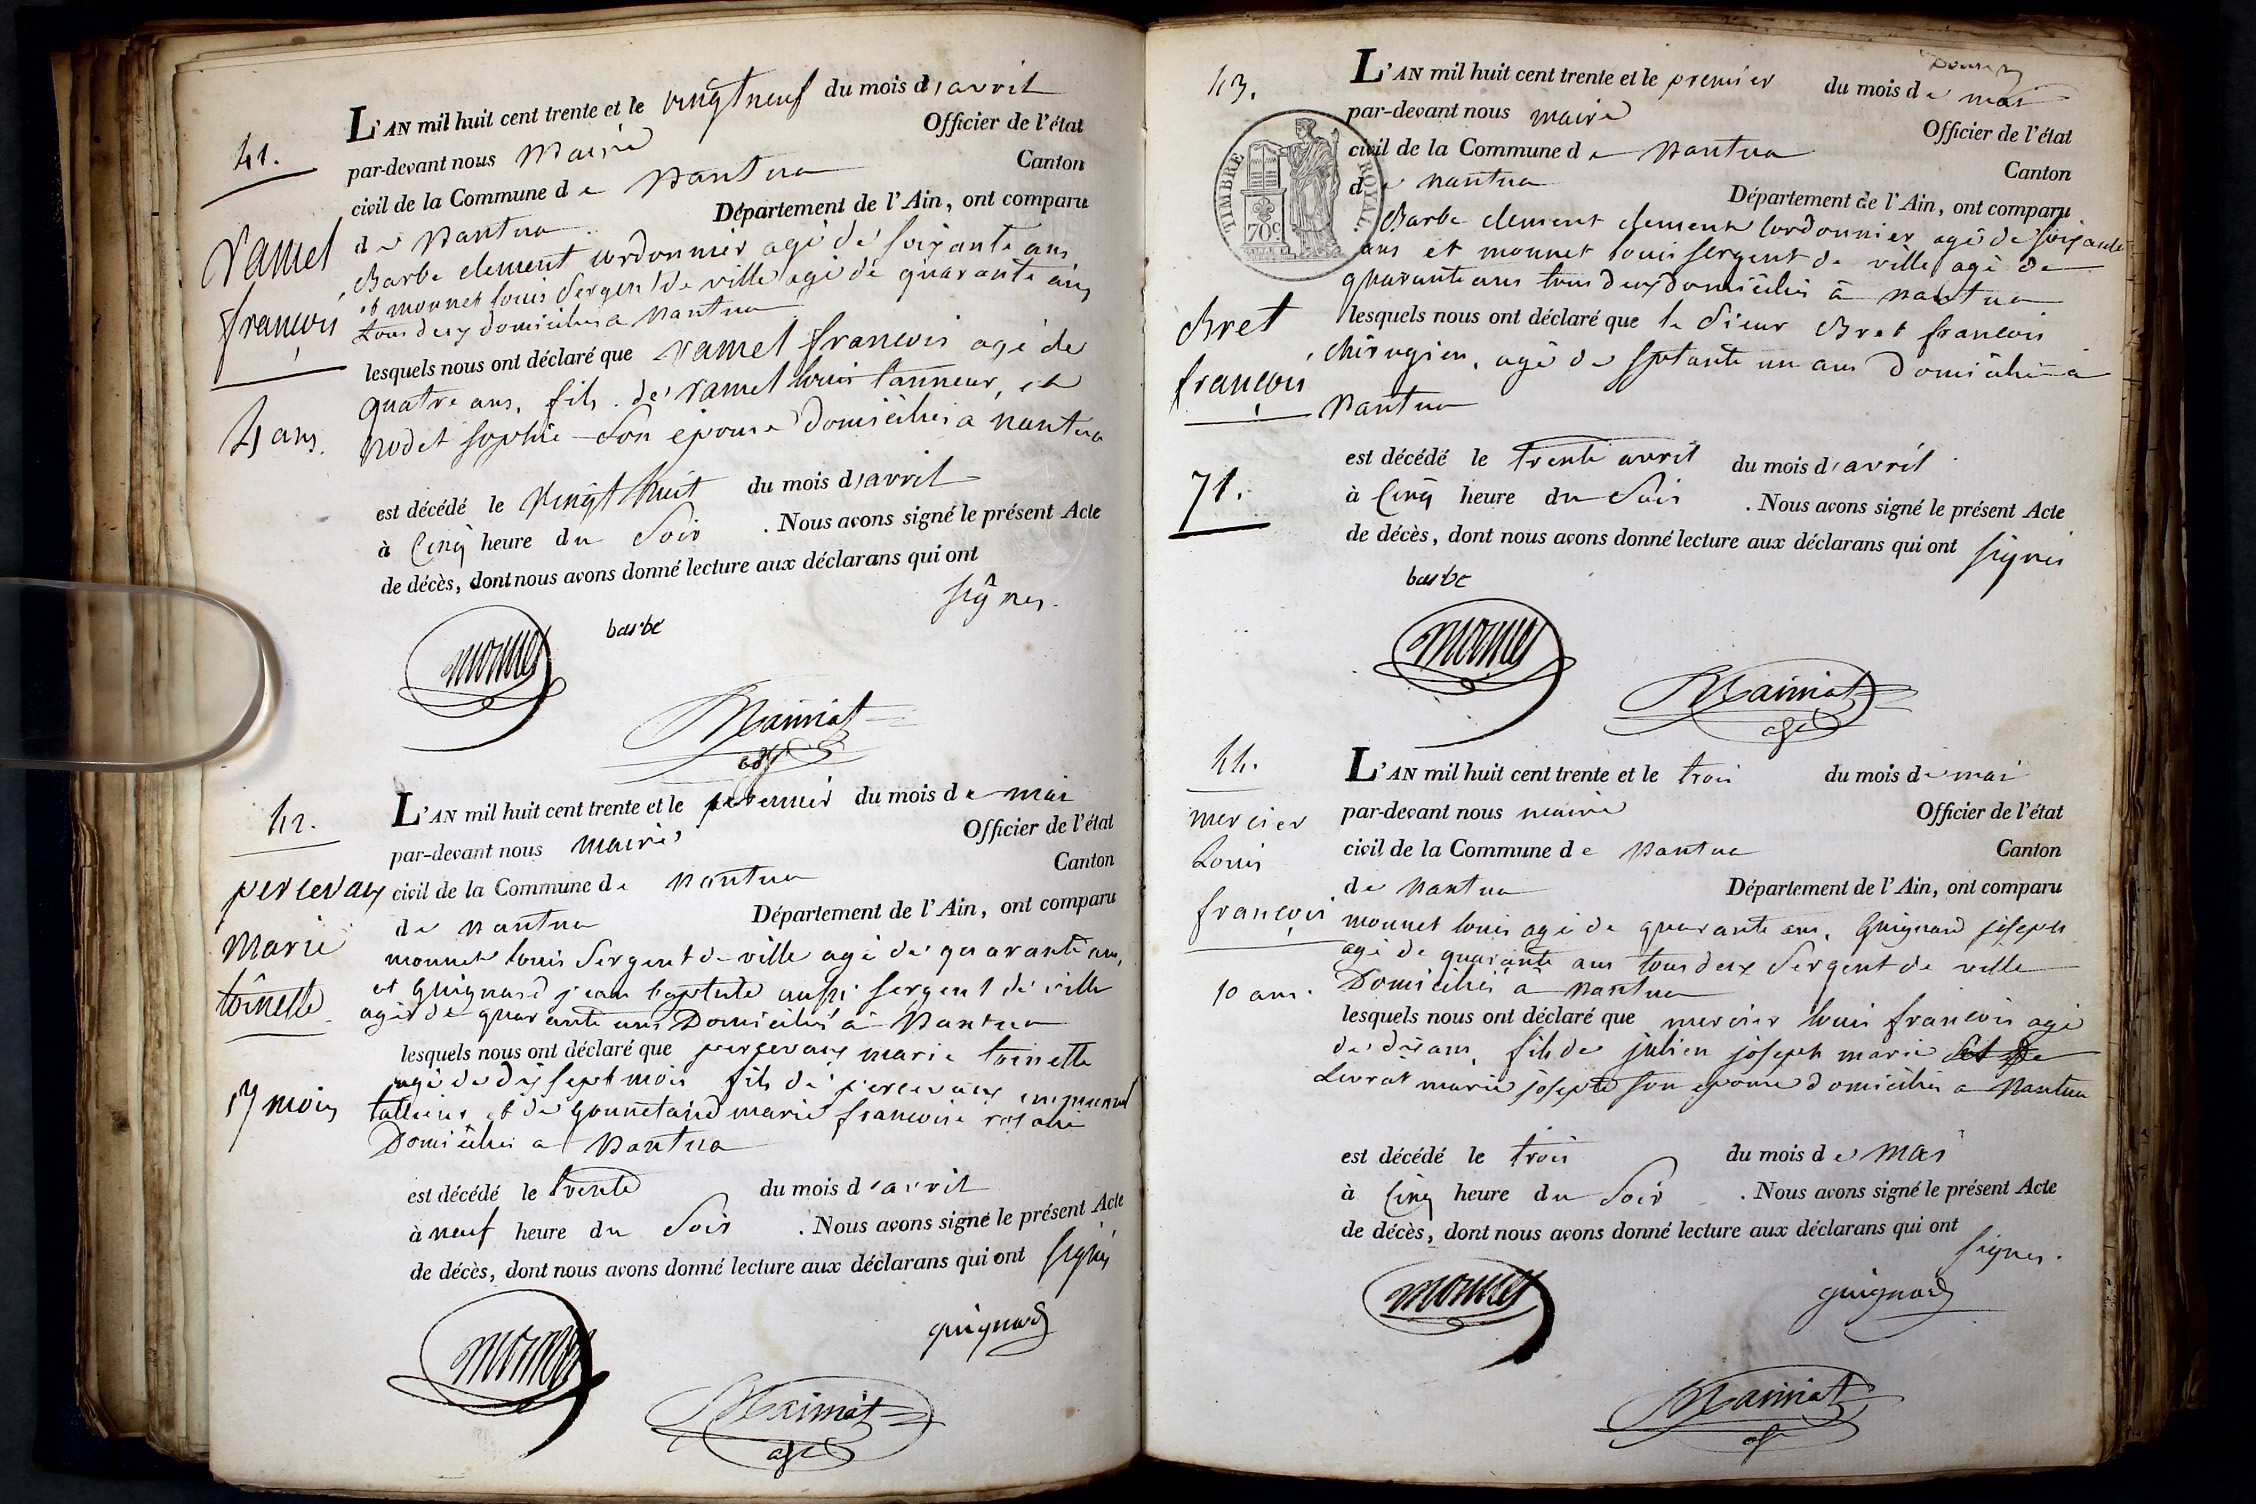 41.
Vamel
françois
4 ans.
L'AN mil huit cent trente et le vingt neuf du mois d'avril
par-devant nous Maire Officier de l'état
civil de la Commune de Nantua Canton
de Nantua Département de l'Ain, ont comparu
Barbe clement cordonnier agé de soixante ans
et monnet louis Sergent de ville agé de quarante ans
tous deux domiciliés a Nantua
lesquels nous ont déclaré que Vamel françois agé de
quatre ans, fils de Vamel louis tanneur, et
nodet sophie son epouse Domiciliés a nantua
est décédé le Vingt huit du mois d'avril
à Cinq heure du Soir . Nous avons signé le présent Acte
de décès, dont nous avons donné lecture aux déclarans qui ont
signés.
monnet
barbe
42.
percevaux
Marie
toinette
17 mois
L'AN mil huit cent trente et le premier du mois de mai
par-devant nous maire Officier de l'état
civil de la Commune de Nantua Canton
de Nantua Département de l'Ain, ont comparu
monnet louis Sergent de ville agé de quarante ans,
et Guignard jean baptiste aussi sergent de ville
agés de quarante ans Domiciliés à Nantua
lesquels nous ont déclaré que percevaux marie toinette
agé de dix sept mois fils de percevaux
et de marie francoise rosalie
Domiciliés a Nantua
est décédé le trente du mois d'avril
à neuf heure du Soir . Nous avons signé le présent Acte
de décès, dont nous avons donné lecture aux déclarans qui ont signés
monnet
guignard
43.
Bret
françois
71.
TIMBRE ROYAL.
70c
L'AN mil huit cent trente et le premier du mois de mai
par-devant nous maire Officier de l'état
civil de la Commune de Nantua Canton
de nantua Département de l'Ain, ont comparu
Barbe clement clement Cordonnier agé de soixante
ans et monnet louis sergent de ville agé de
quarante ans tous deux domiciliés à nantua
lesquels nous ont déclaré que le Sieur Bret francois
chirugien, agé de septante un ans Domicilié à
Nantua
est décédé le trente avril du mois d'avril
à Cinq heure du Soir . Nous avons signé le présent Acte
de décès, dont nous avons donné lecture aux déclarans qui ont signés
barbe
monnet
44.
mercier
Louis
françois
10 ans.
L'AN mil huit cent trente et le trois du mois de mai
par-devant nous maire Officier de l'état
civil de la Commune de Nantua Canton
de Nantua Département de l'Ain, ont comparu
monnet louis agé de quarante ans, Guignard joseph
agé de quarante ans tous deux Sergent de ville
Domiciliés à Nantua
lesquels nous ont déclaré que mercier louis francois agé
de dix ans, fils de julien joseph marie et de
Levrat marie josepte son epouse domiciliés a Nantua
est décédé le trois du mois de Mai
à Cinq heure du Soir . Nous avons signé le présent Acte
de décès, dont nous avons donné lecture aux déclarans qui ont
signés.
monnet
guignard